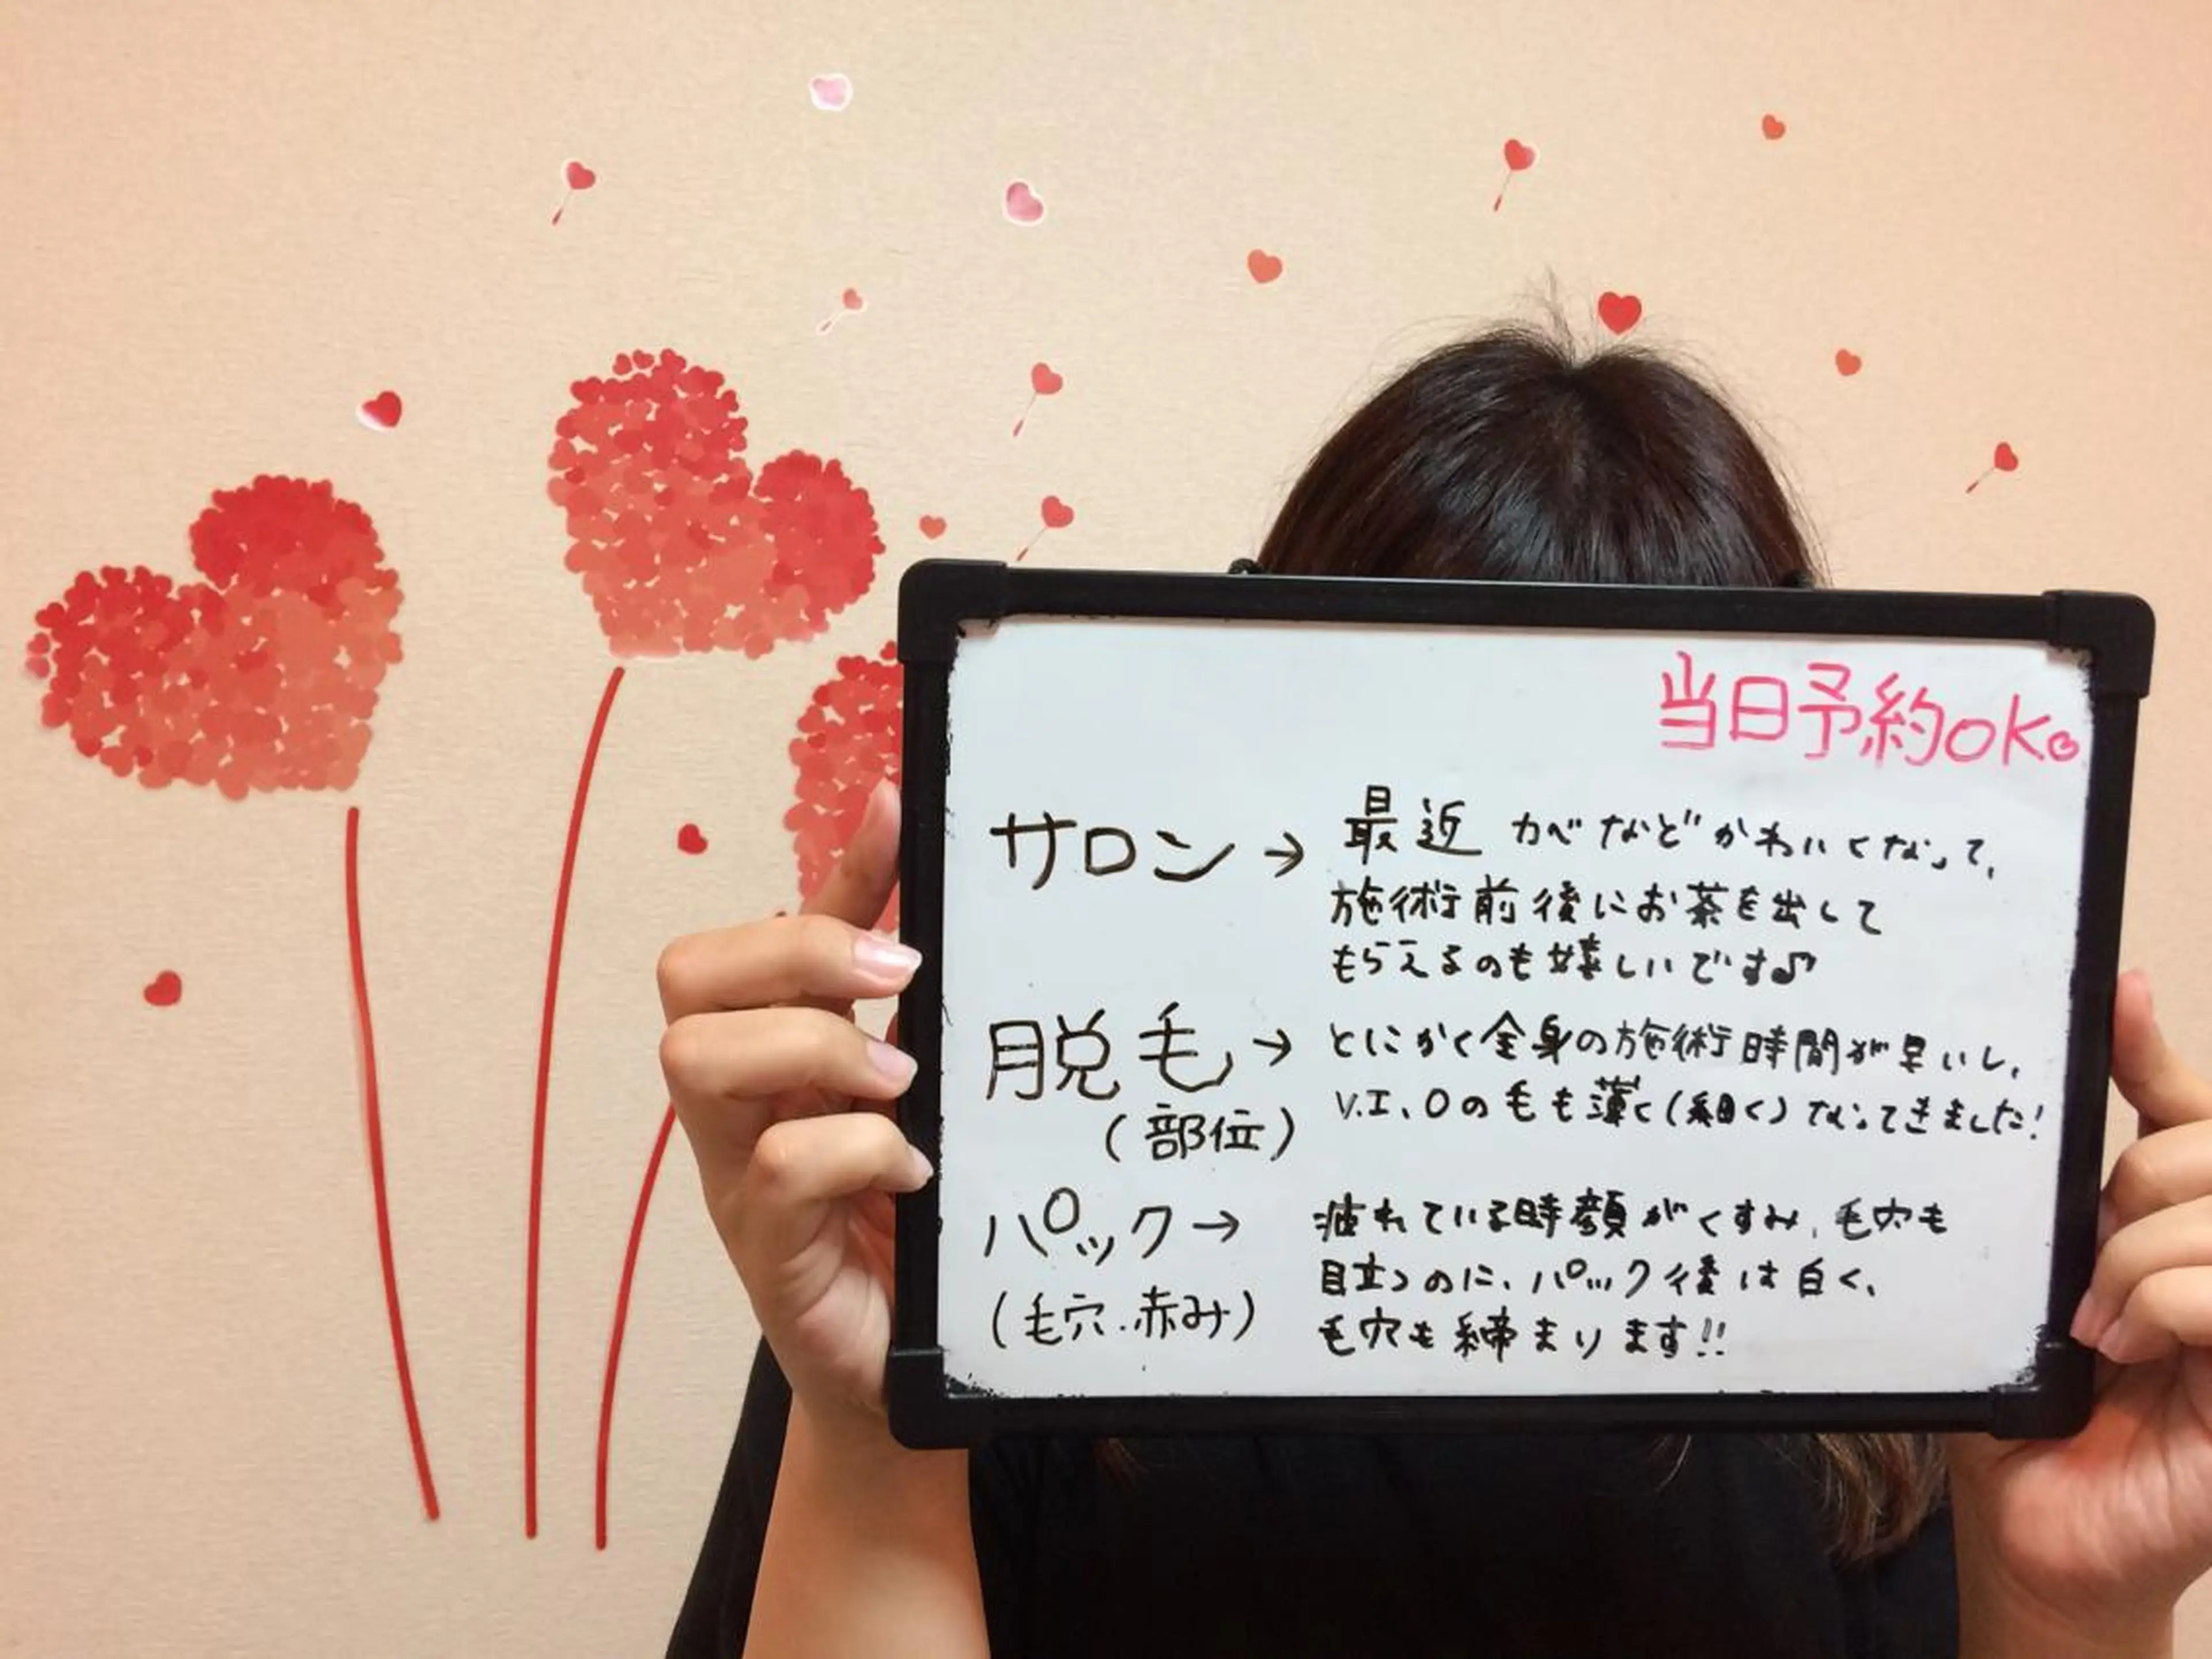 当日予約OK。
サロン→ 最近 カベなどかわいくなって、
施術前後にお茶を出して
もらえるのも嬉しいです♪
脱毛→ とにかく全身の施術時間が早いし、
(部位) V.I.Oの毛も薄く(細く)なってきました!
パック→ 疲れている時顔がくすみ、毛穴も
(毛穴.赤み) 目立つのに、パック後は白く、
毛穴も締まります!!